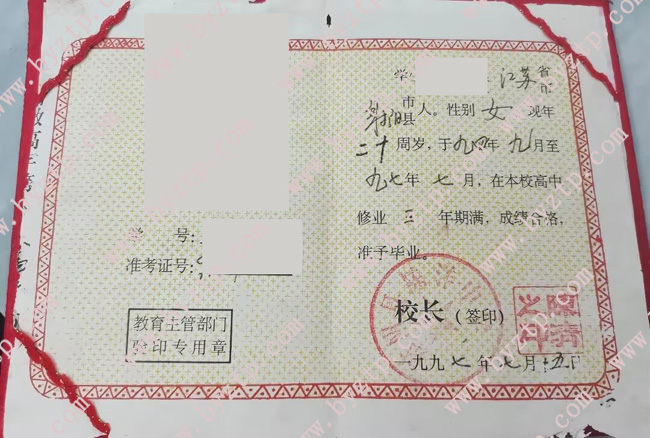 学 江苏 省
射阳 市县 人。性别 女 现年
二十 周岁，于九四年九月至
九七年 七月，在本校高中
修业 三 年期满，成绩合格，
准予毕业。
学 号：
准考证号：
校长（签印）
教育主管部门
验印专用章
一九九七年七月十五日
www.byztp.com